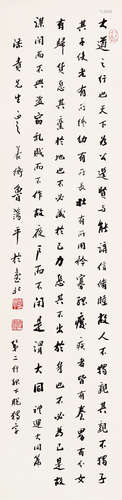 大道之行也天下為公選賢與能講信脩睦故人不獨親其親不獨子
其子使老有所終幼有所長壯有所用矜寡孤廢疾者皆有所養男有分女
有歸貨惡其棄於地也不必藏於己力惡其不出於身也不必為己是故
謀閉而不興盜竊亂賊而不作故外戶而不閉是謂大同禮運大同篇
先生正之 魯蕩平於臺北
第二行孤下脫獨字